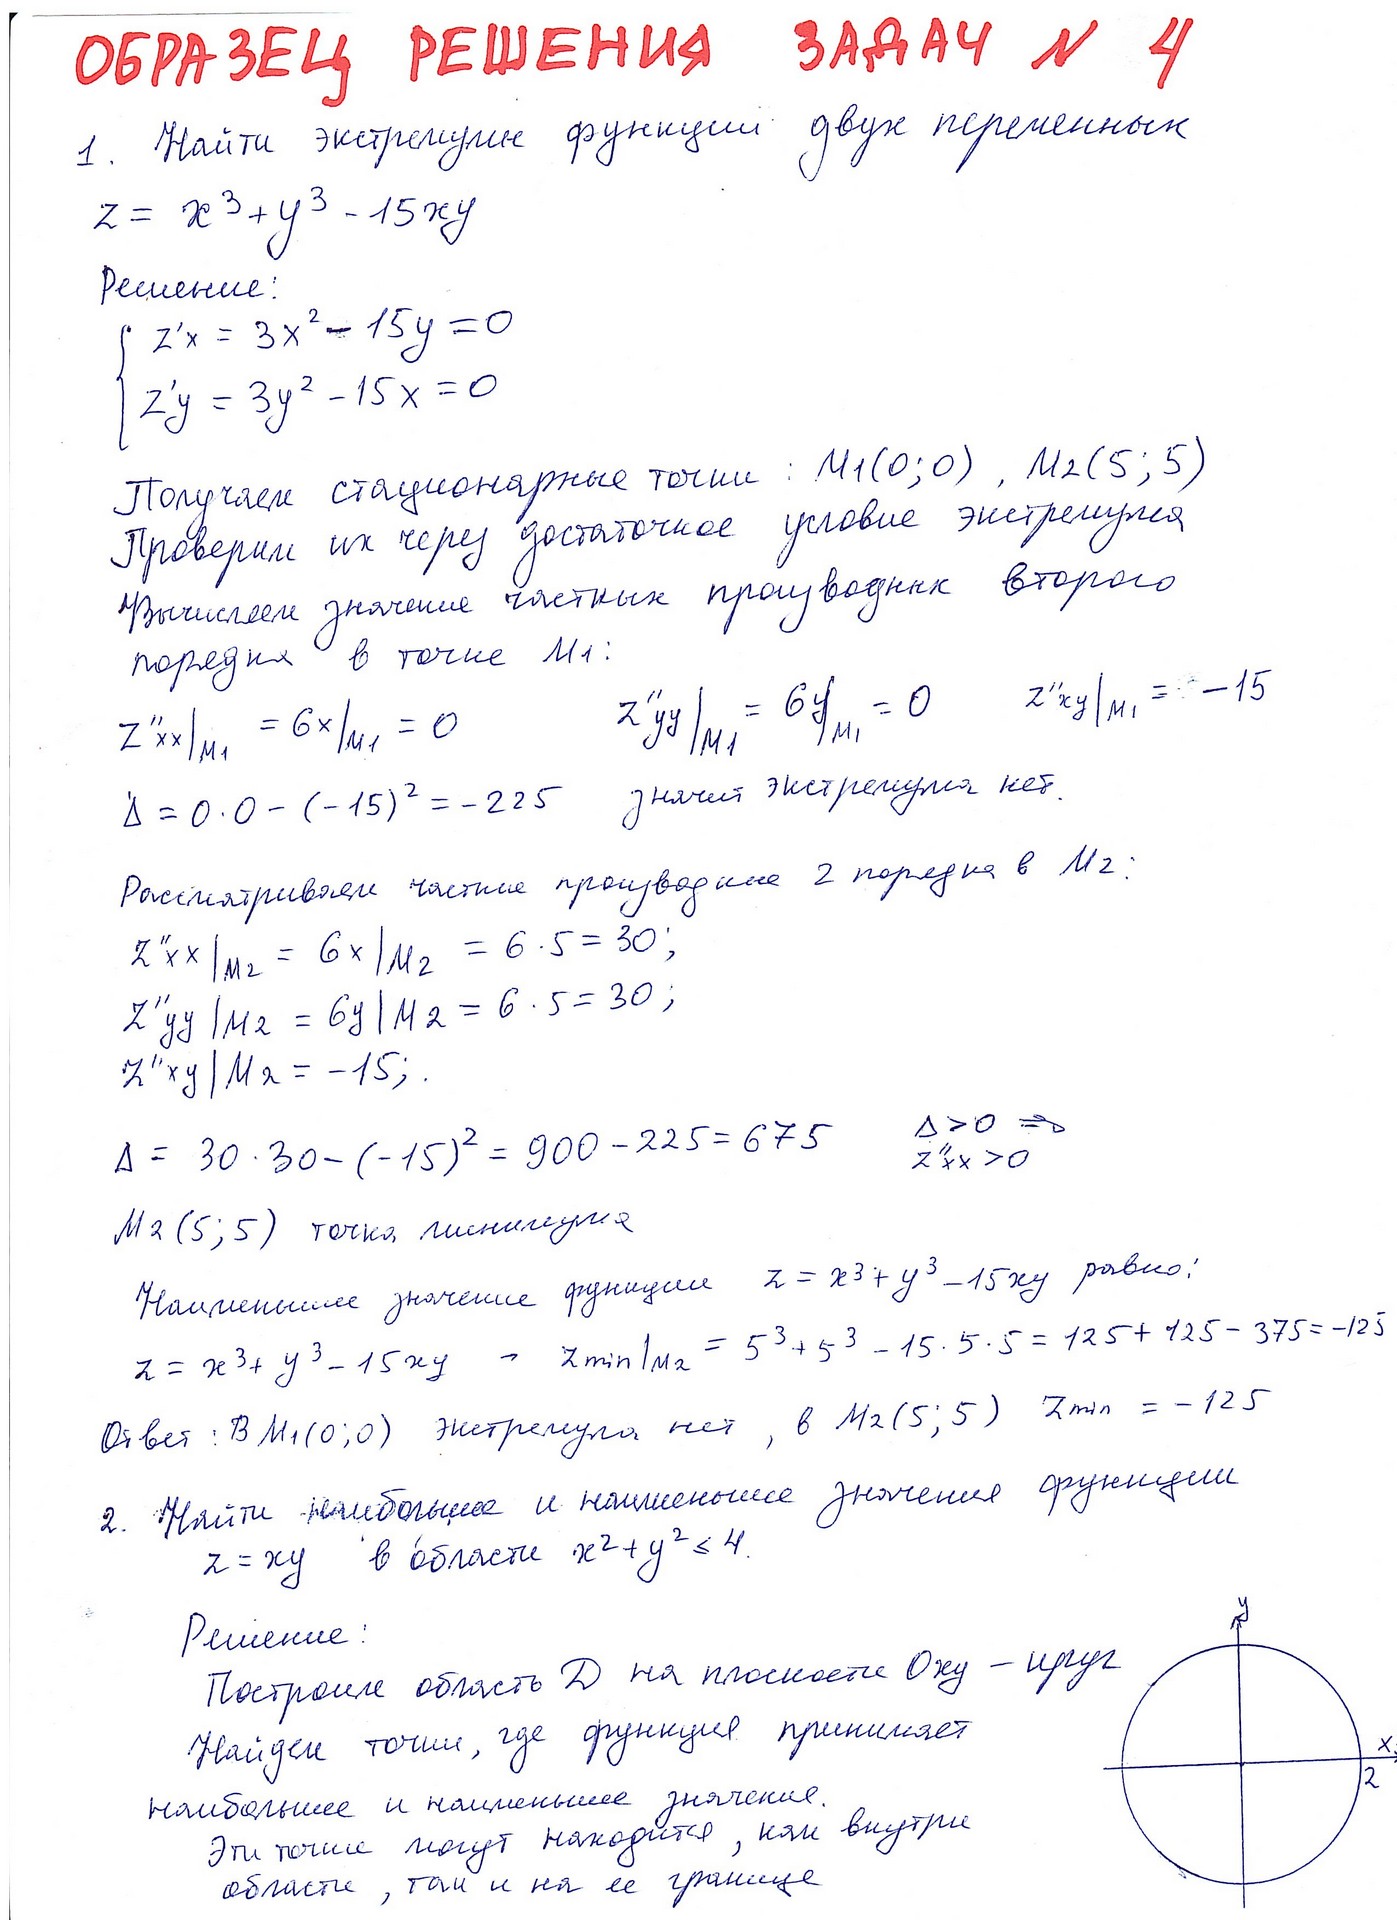 ОБРАЗЕЦ РЕШЕНИЯ ЗАДАЧ N 4
1. Найти экстремумы функции двух переменных
z = x³ + y³ - 15xy
Решение:
z'x = 3x² - 15y = 0
z'y = 3y² - 15x = 0
Получаем стационарные точки : M1(0;0) , M2(5;5)
Проверим их через достаточное условие экстремума
Вычисляем значение частных производных второго
порядка в точке M1:
z''xx|M1 = 6x|M1 = 0 z''yy|M1 = 6y|M1 = 0 z''xy|M1 = -15
Δ = 0·0 - (-15)² = -225 значит экстремума нет.
Рассматриваем частные производные 2 порядка в M2:
z''xx|M2 = 6x|M2 = 6·5 = 30;
z''yy|M2 = 6y|M2 = 6·5 = 30;
z''xy|M2 = -15;.
Δ = 30·30 - (-15)² = 900 - 225 = 675 Δ > 0 ⇒
z''xx > 0
M2(5;5) точка минимума
Наименьшее значение функции z = x³ + y³ - 15xy равно:
z = x³ + y³ - 15xy - zmin|M2 = 5³ + 5³ - 15·5·5 = 125 + 125 - 375 = -125
Ответ: В M1(0;0) экстремума нет, в M2(5;5) Zmin = -125
2. Найти наибольшее и наименьшее значения функции
z = xy в области x² + y² ≤ 4.
Решение:
Построим область D на плоскости Oxy - круг
Найдем точки, где функция принимает
наибольшее и наименьшее значение.
Эти точки могут находится, как внутри
области, так и на ее границе
y
x
2